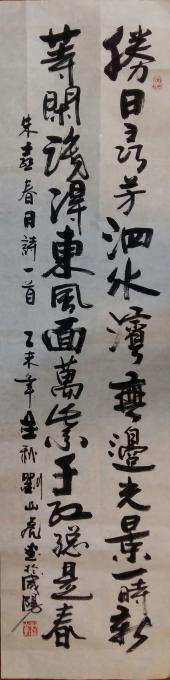 勝日尋芳泗水濱無邊光景一時新
等閒識得東風面萬紫千紅總是春
朱熹春日詩一首 乙未年金秋劉山虎書於咸陽